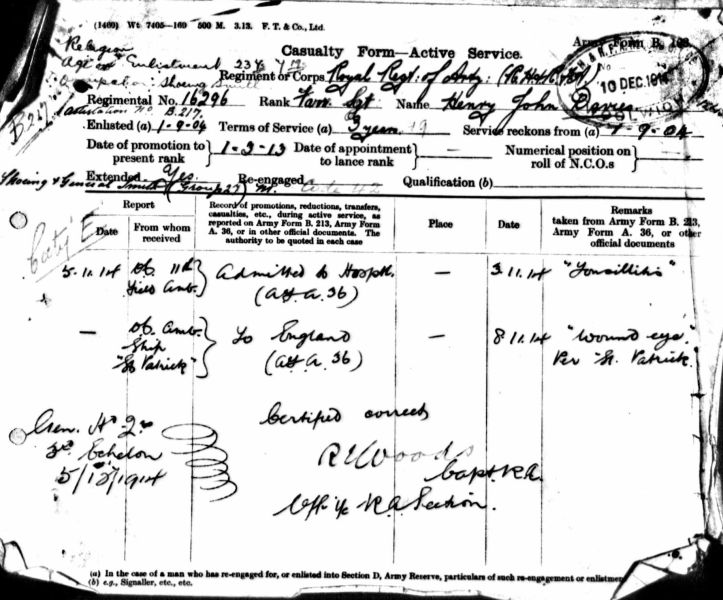 (1469) Wt 7405—160 500 M. 3.13. F. T. & Co., Ltd.
Army Form B. 103.
Casualty Form—Active Service.
Religion
Age on Enlistment 23
Occupation: Shoeing Smith
Attestation
B.217.
Regiment or Corps Royal Regt: of Arty:
10 DEC. 191
Regimental No. 16296 Rank Farr Sgt Name Henry John Davies
Enlisted (a) 1-9-04 Terms of Service (a) 3 years Service reckons from (a) 1-9-04
Date of promotion to present rank } 1-3-13 Date of appointment to lance rank } — Numerical position on roll of N.C.Os }
Extended Yes. Re-engaged Qualification (b)
Shoeing & General Smith (Group 27)
Caty E
Report
Date
From whom received
Record of promotions, reductions, transfers, casualties, etc., during active service, as reported on Army Form B. 213, Army Form A. 36, or in other official documents. The authority to be quoted in each case
Place
Date
Remarks
taken from Army Form B. 213, Army Form A. 36, or other official documents
5.11.14 Of. 11th Field Amb. } Admitted to Hosptl. (A.F. A. 36) — 3.11.14 "Tonsillitis"
— Of. Amb. Ship "St Patrick" } To England (A.F. A. 36) — 8.11.14 "Wound eye" Per "St. Patrick.
Gen. No 2.
3rd Echelon
5/12/1914
Certified correct
R E Woods
Capt. R.A.
Off i/c R.A Section.
(a) In the case of a man who has re-engaged for, or enlisted into Section D, Army Reserve, particulars of such re-engagement or enlistment
(b) e.g., Signaller, etc., etc.